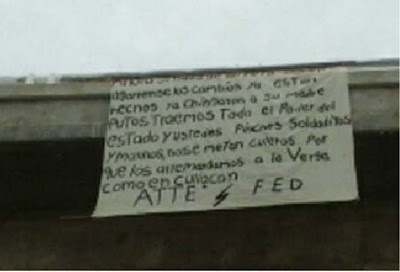 agarrense los cambios ya estan
hechos ya chingaron a su madre
Putos traemos Toda el Poder del
estado y ustedes Pinches Soldaditos
y marinos, no se metan culeros Por
que los arremangamos a la Verga
como en culiacan
ATTE: FED